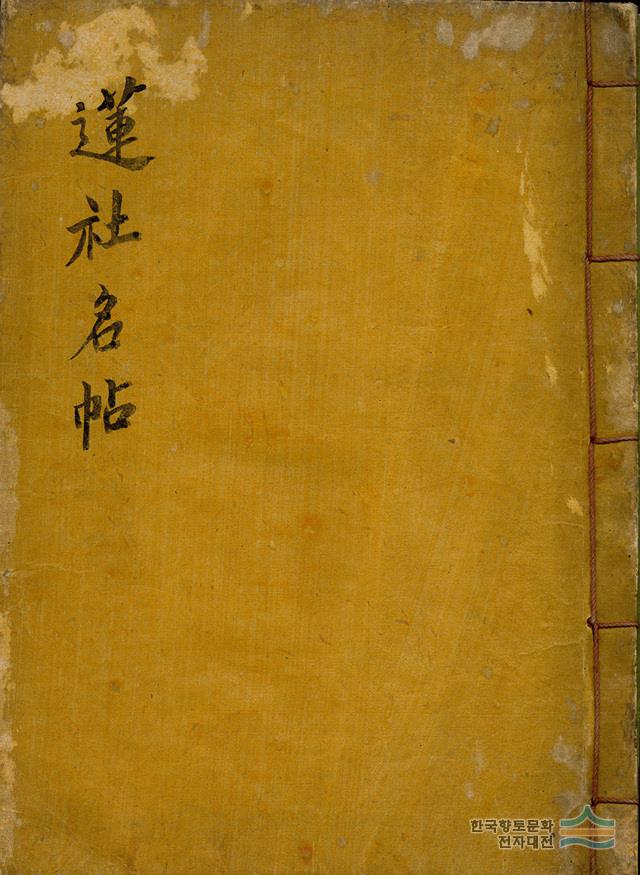 蓮社名帖
한국향토문화
전자대전